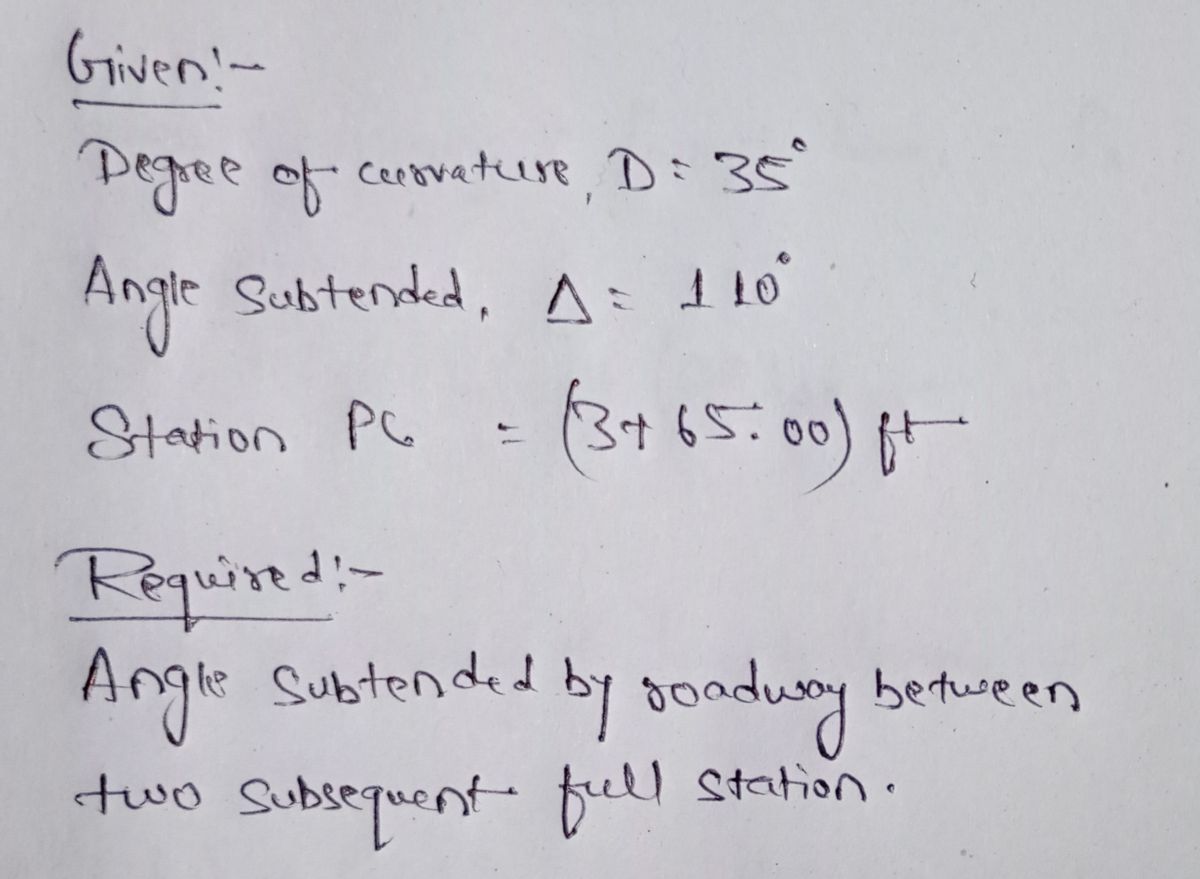 Given:-
Degree of curvature, D = 35°
Angle Subtended, Δ = 110°
Station PC = (3+65.00) ft
Required:-
Angle Subtended by roadway between
two subsequent full station.